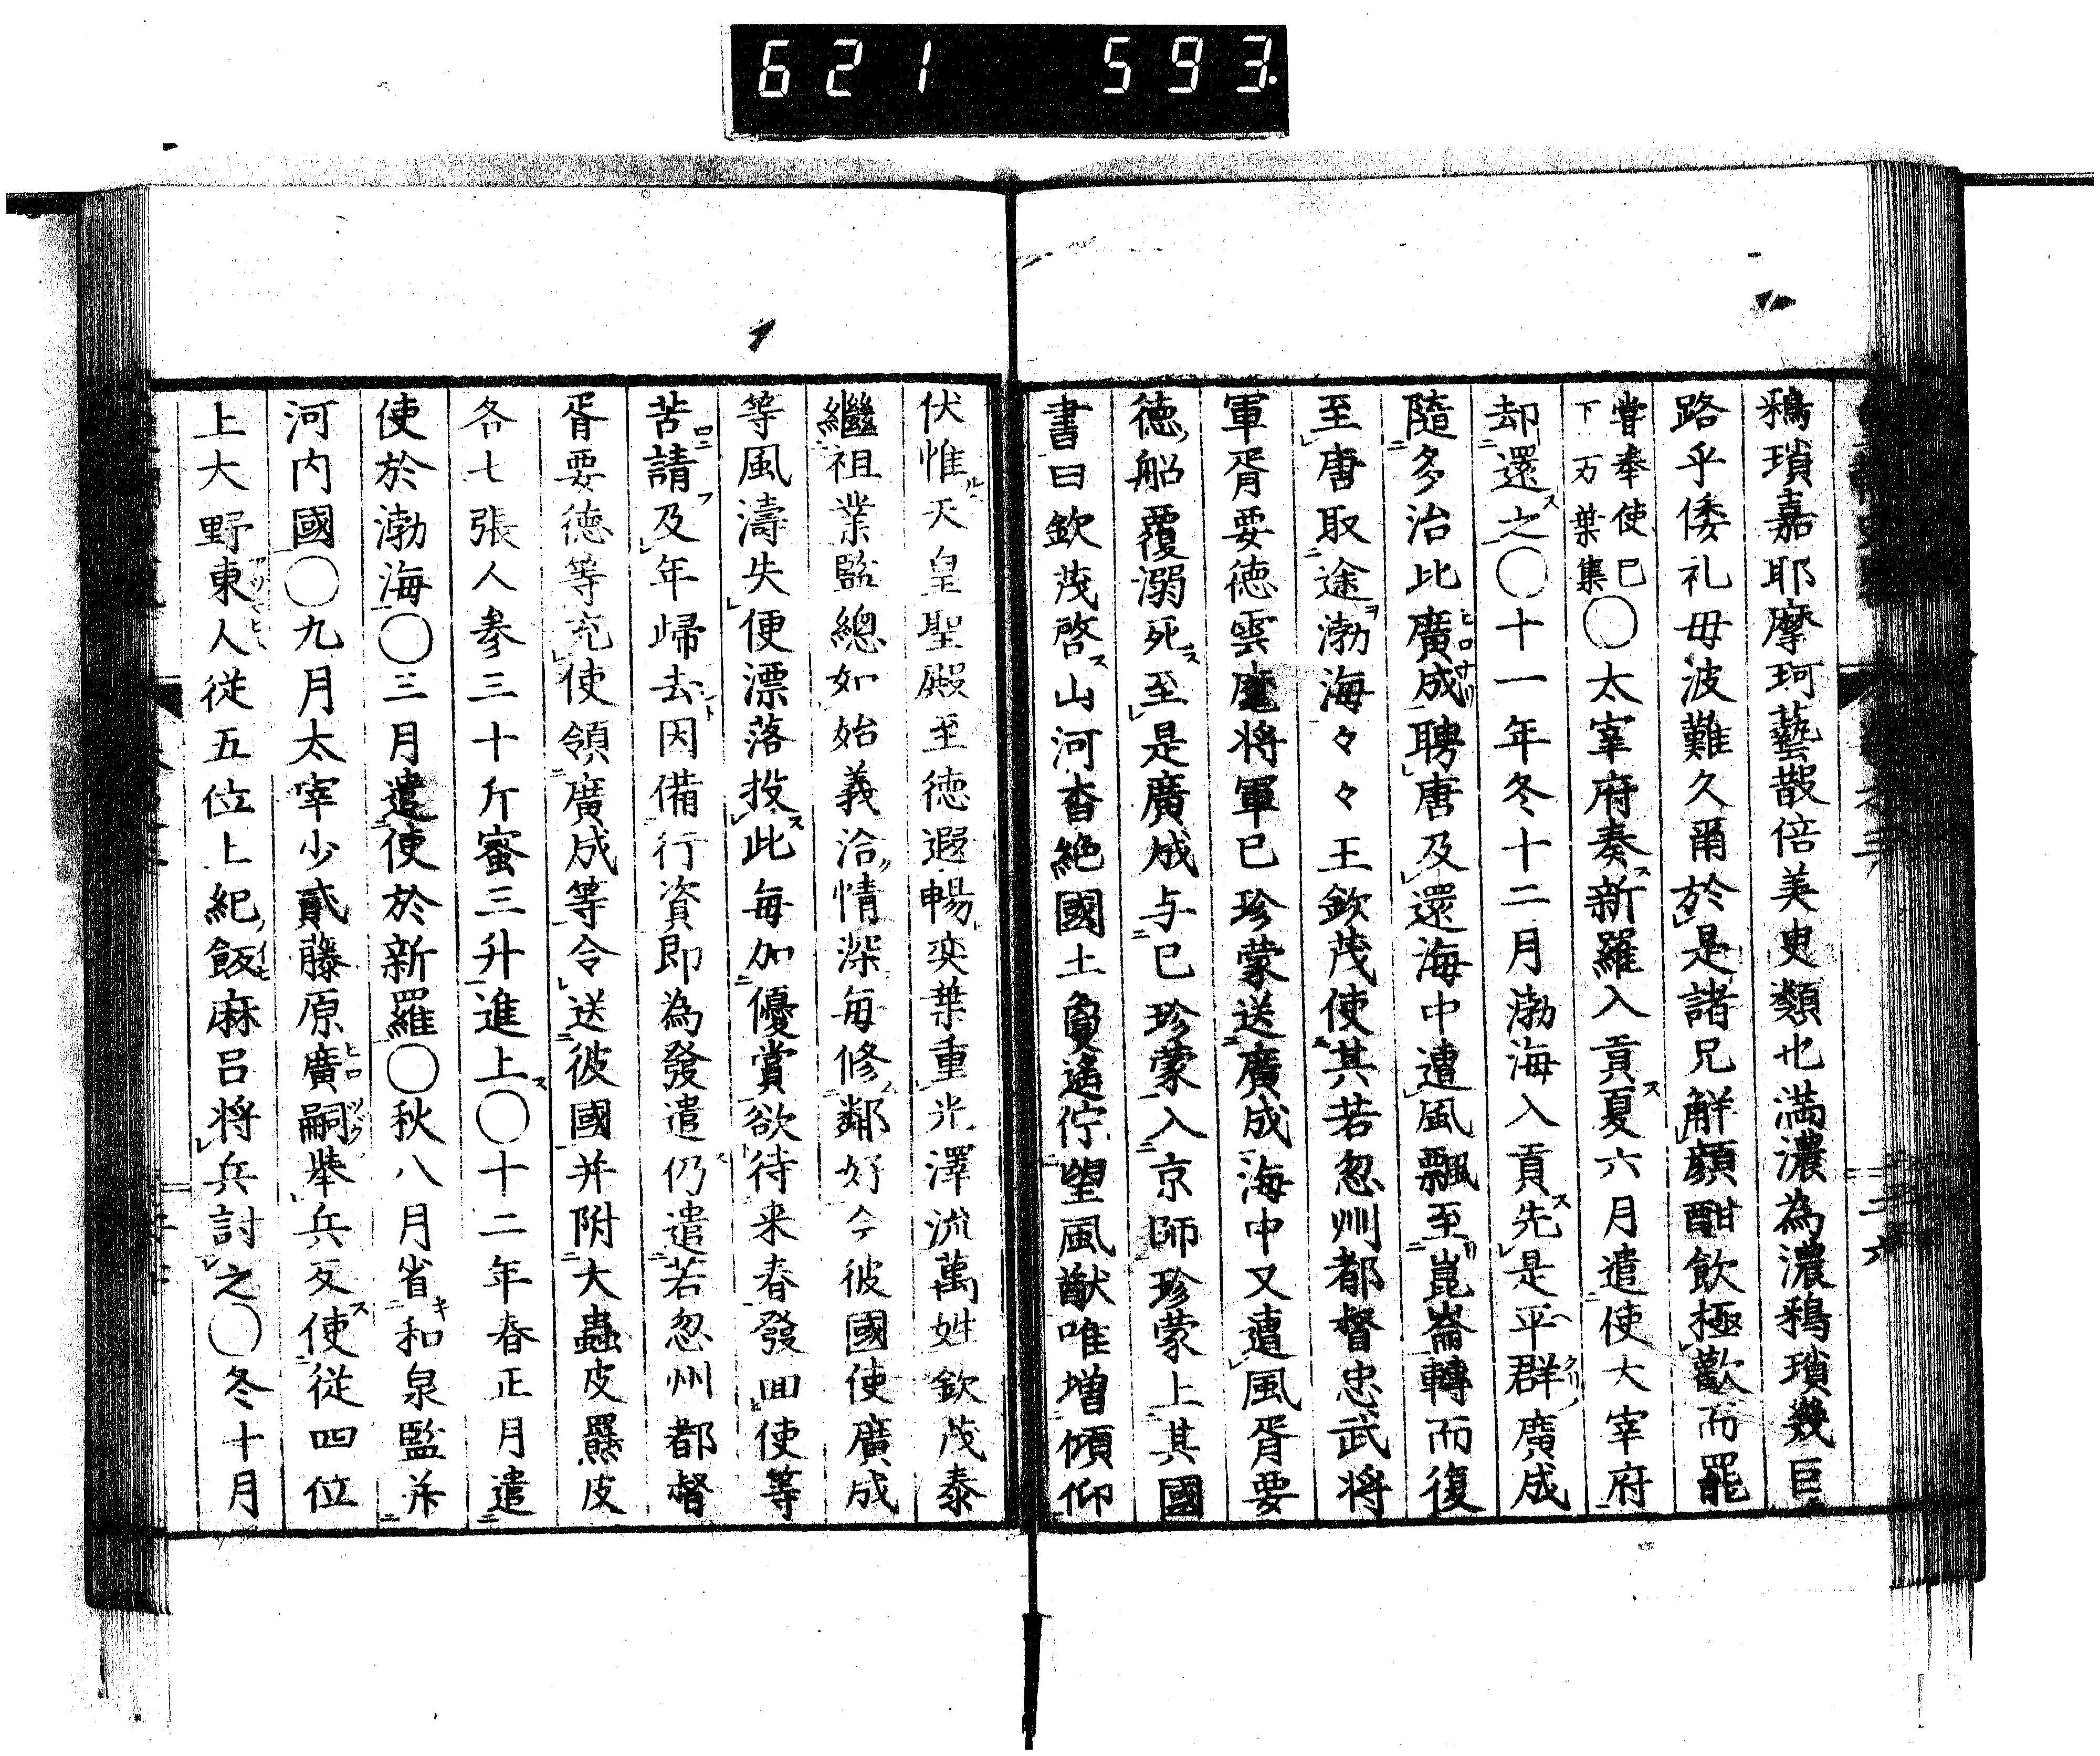 621 593
鴉瑣嘉耶摩珂藝散倍美吏類也満濃為濃鴉瑣幾巨
路乎倭礼毋波難久爾於是諸兄解顔酣飲極歓而罷
嘗奉使已
下万葉集
〇太宰府奏新羅入貢夏六月遣使大宰府
却還之〇十一年冬十二月渤海入貢先是平群廣成
隨多治比廣成聘唐及還海中遭風飄至崑崙轉而復
至唐取途渤海々々王欽茂使其若忽州都督忠武将
軍胥要徳雲麾将軍已珍蒙送廣成海中又遭風胥要
徳船覆溺死至是廣成与已珍蒙入京師珍蒙上其國
書曰欽茂啓山河杳絶國土夐遥佇望風猷唯増傾仰
伏惟天皇聖殿至徳遐暢奕葉重光澤流萬姓欽茂泰
繼祖業監總如始義洽情深毎修鄰好今彼國使廣成
等風濤失便漂落投此毎加優賞欲待来春發回使等
苦請及年歸去因備行資即為發遣仍遣若忽州都督
胥要徳等充使領廣成等令送彼國并附大蟲皮羆皮
各七張人参三十斤蜜三升進上〇十二年春正月遣
使於渤海〇三月遣使於新羅〇秋八月省和泉監并
河内國〇九月太宰少貳藤原廣嗣舉兵反使従四位
上大野東人従五位上紀飯麻呂将兵討之〇冬十月